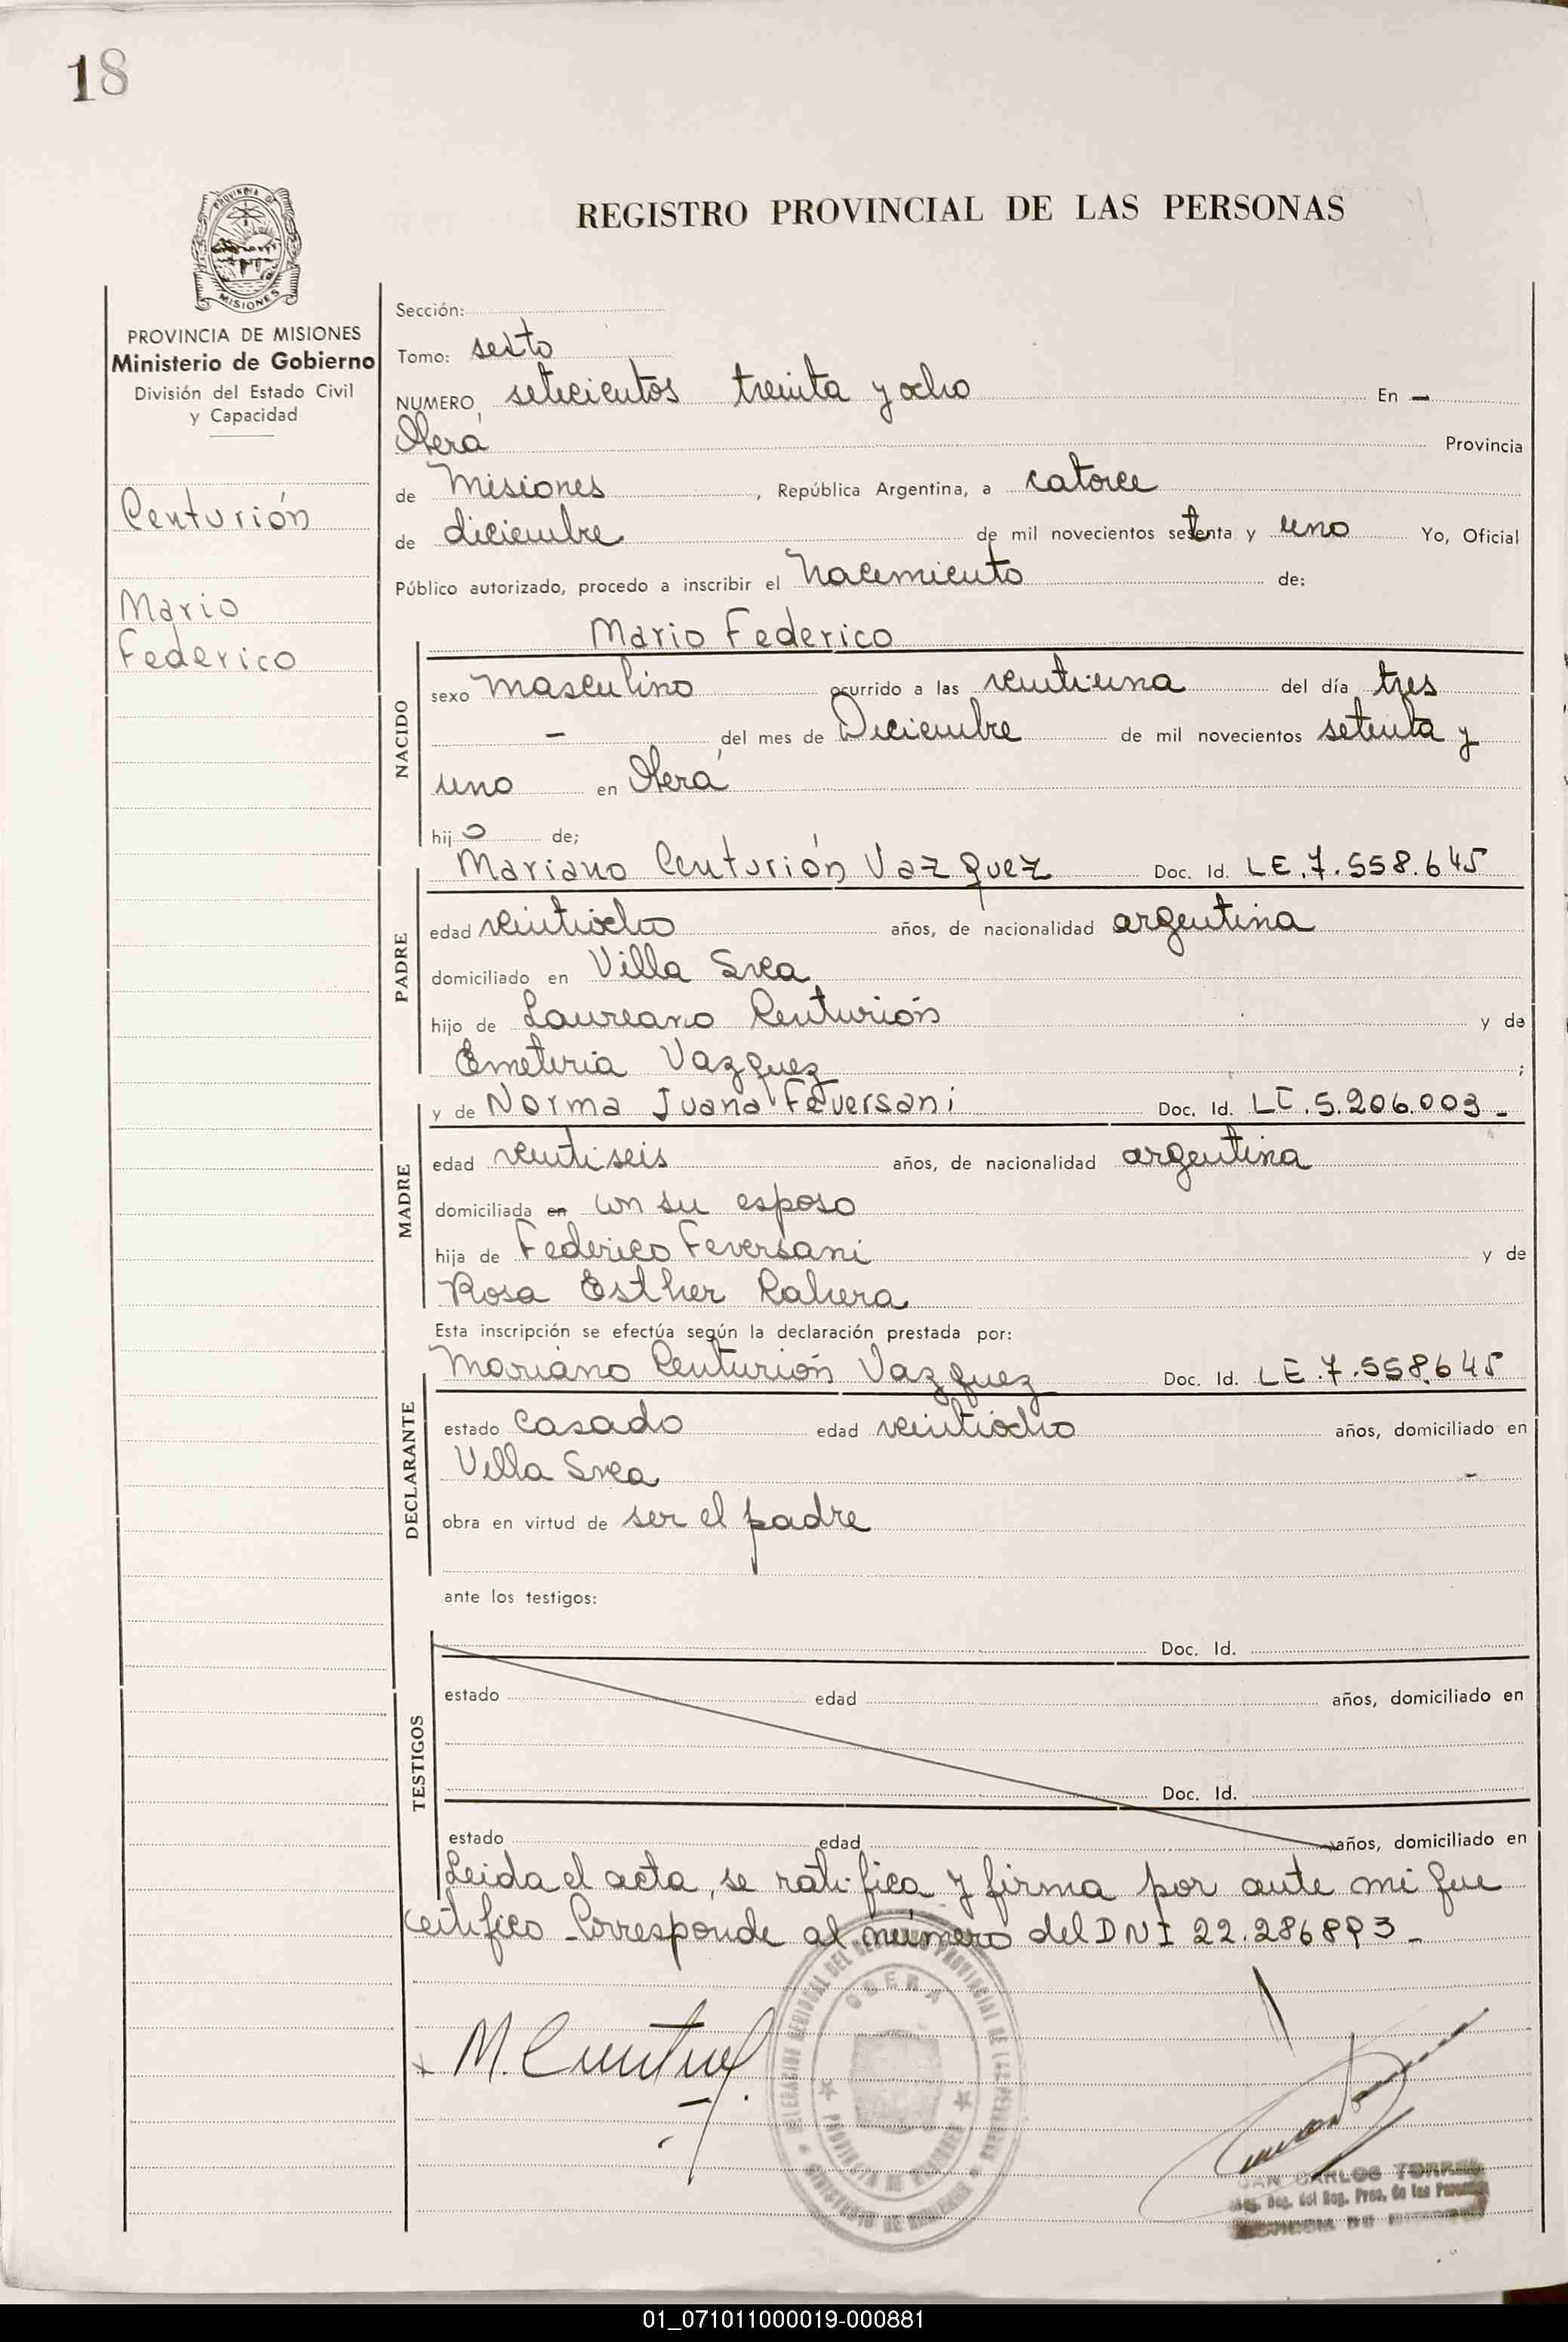 18
REGISTRO PROVINCIAL DE LAS PERSONAS
PROVINCIA DE MISIONES
MISIONES
PROVINCIA DE MISIONES
Ministerio de Gobierno
División del Estado Civil
y Capacidad
Centurión
Mario
Federico
Sección:
Tomo: sexto
NUMERO, setecientos treinta y ocho En -
Oberá Provincia
de Misiones, República Argentina, a catorce
de diciembre de mil novecientos setenta y uno Yo, Oficial
Público autorizado, procedo a inscribir el nacimiento de:
Mario Federico
NACIDO
sexo masculino ocurrido a las veintiuna del día tres
- del mes de Diciembre de mil novecientos setenta y
uno en Oberá
hijo de;
Mariano Centurión Vazquez Doc. Id. LE.7.558.645
PADRE
edad veintiocho años, de nacionalidad argentina
domiciliado en Villa Svea
hijo de Laureano Centurión y de
Emeteria Vazquez ;
y de Norma Juana Feversani Doc. Id. LC.5.206.003-
MADRE
edad veintiseis años, de nacionalidad argentina
domiciliada en con su esposo
hija de Federico Feversani y de
Rosa Esther
Esta inscripción se efectúa según la declaración prestada por:
Mariano Centurión Vazquez Doc. Id. LE.7.558.645
DECLARANTE
estado casado edad veintiocho años, domiciliado en
Villa Svea -
obra en virtud de ser el padre
ante los testigos:
Doc. Id.
TESTIGOS
estado edad años, domiciliado en
Doc. Id.
estado edad años, domiciliado en
Leida el acta, se ratifica y firma por ante mi que
certifico - Corresponde al número del DNI 22.286893-
OBERA
PROVINCIA DE MISIONES
CARLOS TORRES
01_071011000019-000881